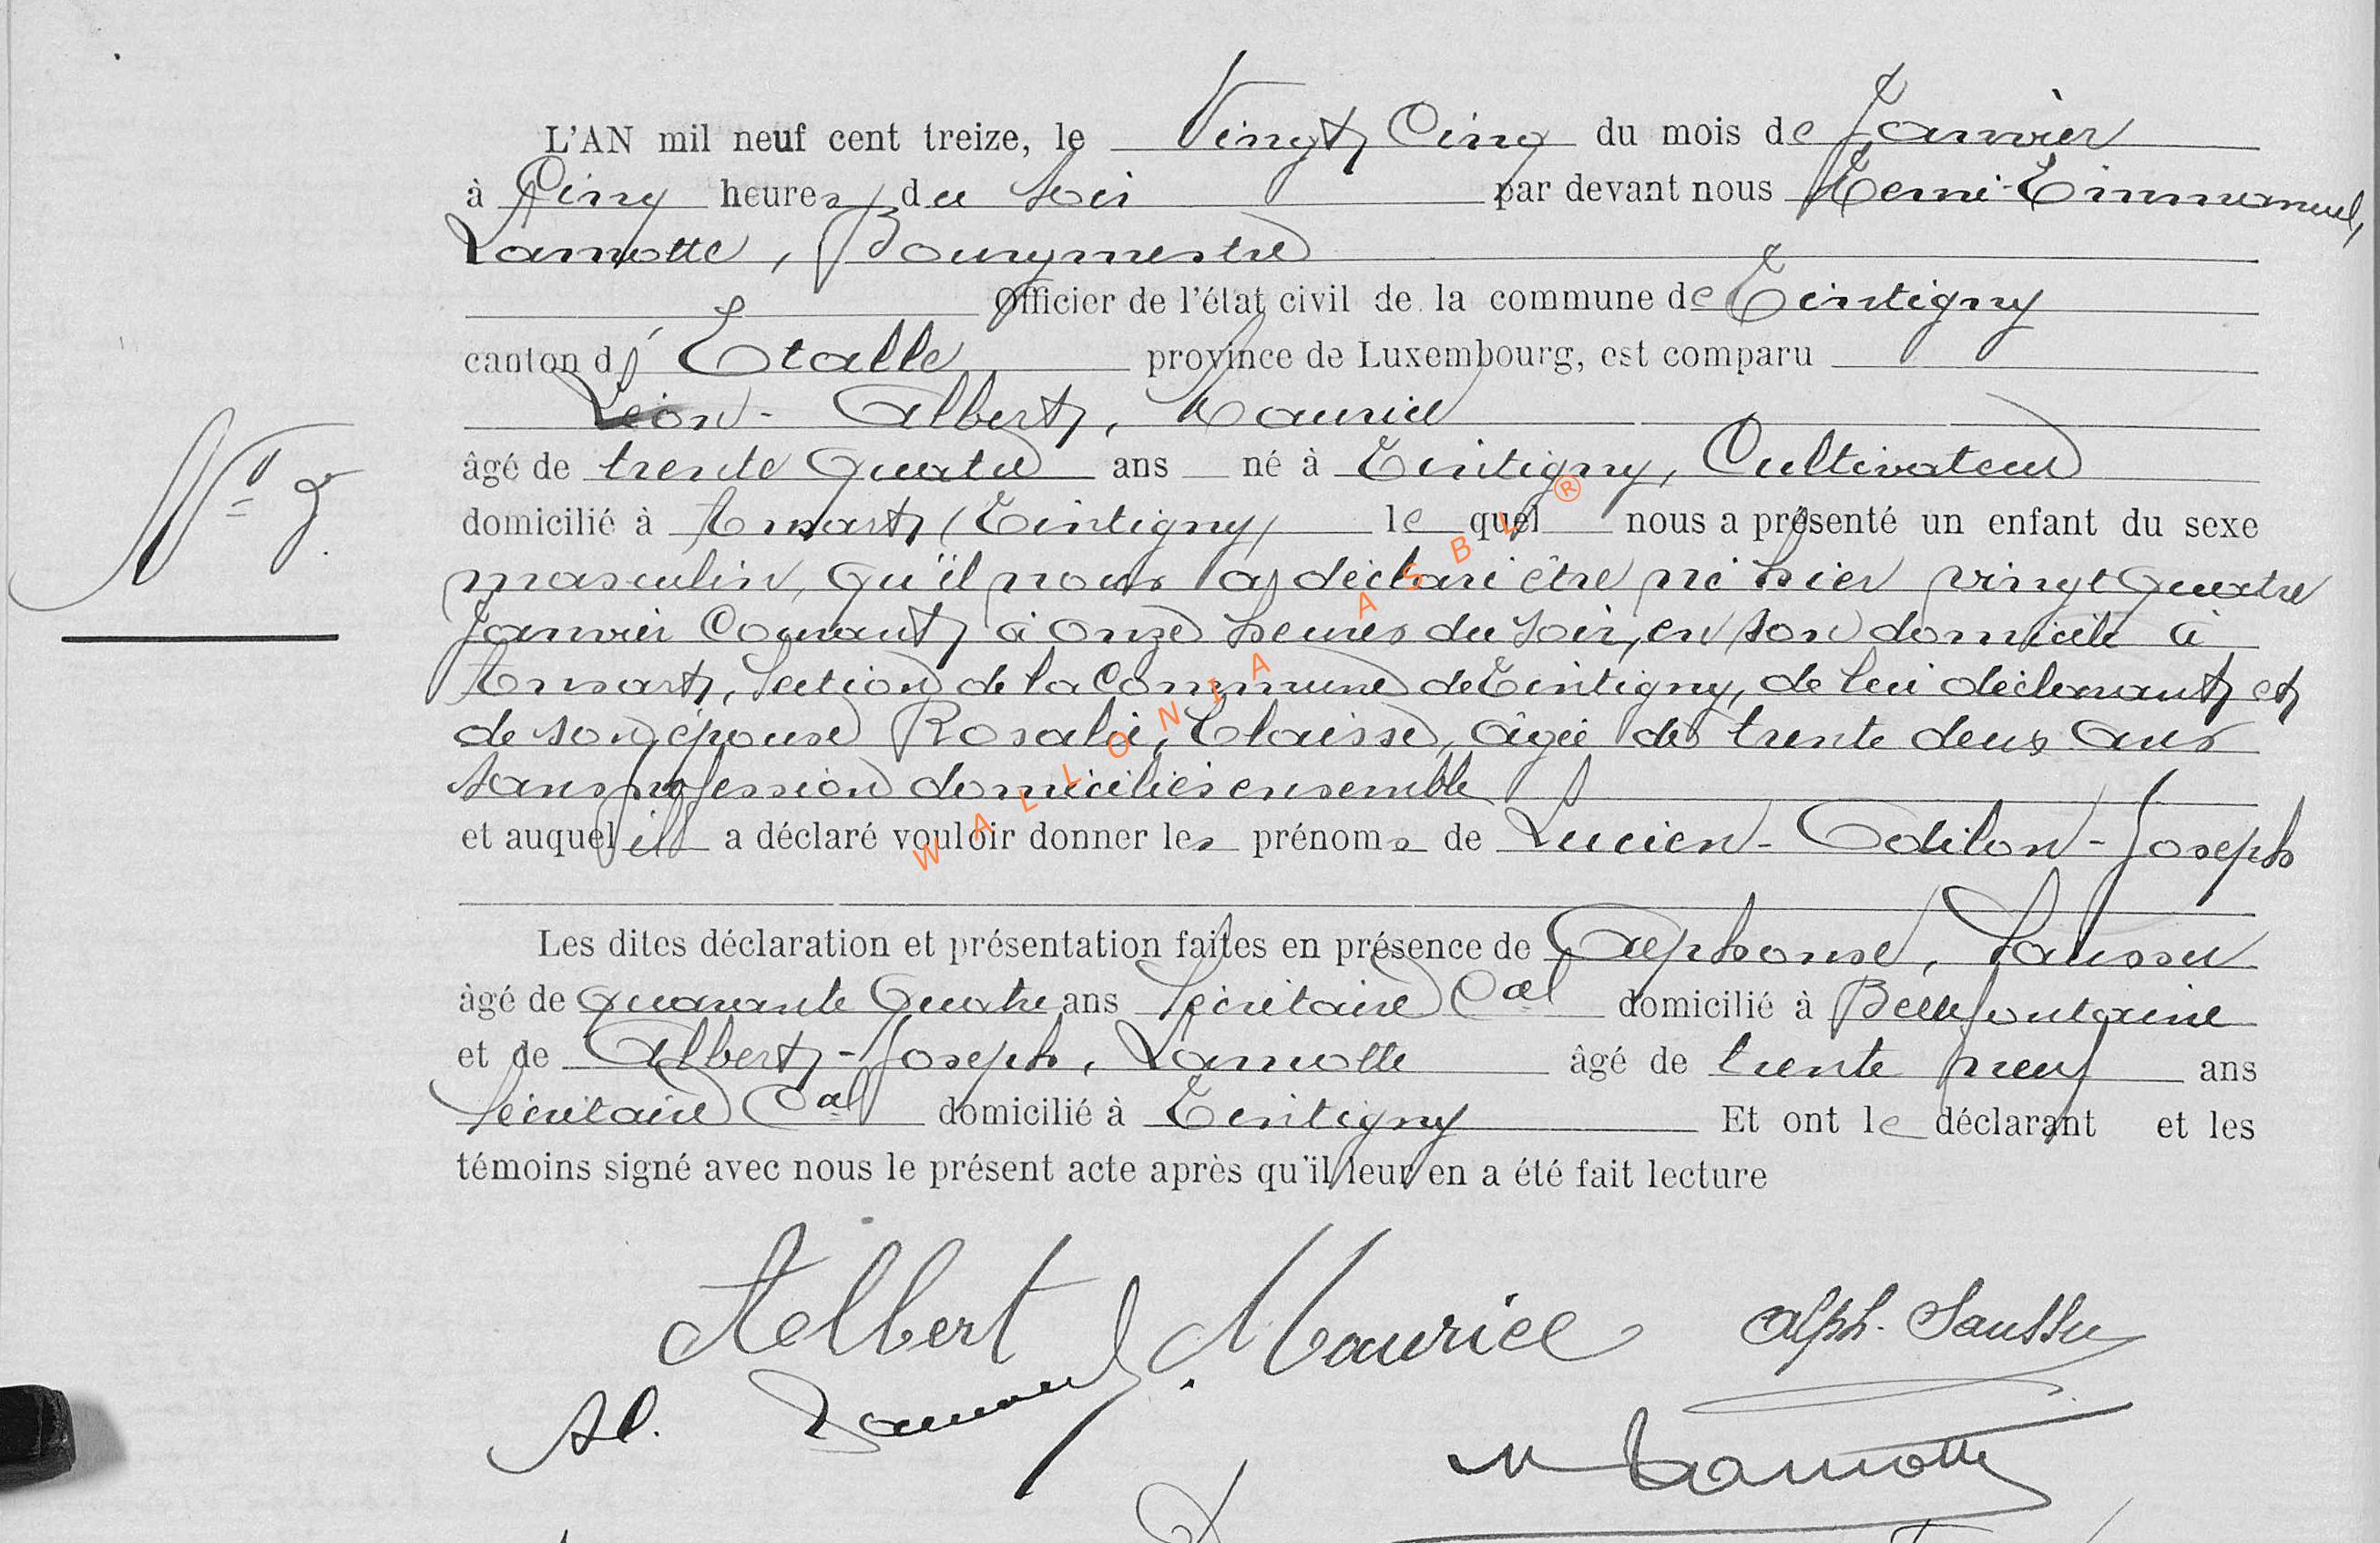 L'AN mil neuf cent treize, le Vingt Cinq du mois de Janvier
à Cinq heures du soir par devant nous Remi-Emmanuel,
Lamotte, Bourgmestre
Officier de l'état civil de la commune de Tintigny
canton d'Etalle province de Luxembourg, est comparu
Léon-Albert, Maurice
âgé de trente quatre ans né à Tintigny, Cultivateur
domicilié à Ansart (Tintigny) lequel nous a présenté un enfant du sexe
masculin, qu'il nous a déclaré être né hier vingt quatre
Janvier Courant, à onze heures du soir, en son domicile à
Ansart, Section de la Commune de Tintigny, de lui déclarant et
de son épouse Rosalie, Claisse, âgée de trente deux ans
sans profession domiciliés ensemble
et auquel il a déclaré vouloir donner les prénoms de Lucien-Odilon-Joseph
Les dites déclaration et présentation faites en présence de Alphonse, Saussu
âgé de quarante quatre ans Secrétaire Cal domicilié à Bellefontaine
et de Albert-Joseph, Lamotte âgé de trente neuf ans
Secrétaire Cal domicilié à Tintigny Et ont le déclarant et les
témoins signé avec nous le présent acte après qu'il leur en a été fait lecture
Albert Maurice Alph. Saussu
Al. Lamotte
Lamotte
WALLONIA ASBL ®